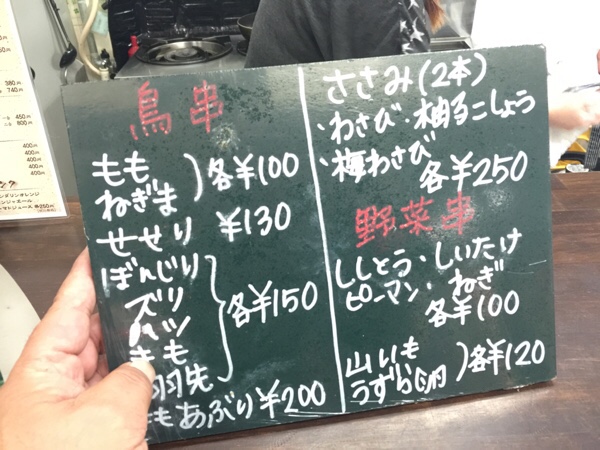 鳥串
もも
ねぎま
各¥100
せせり ¥130
ぼんじり
ズリ
ハツ
きも
羽先
各¥150
ももあぶり ¥200
ささみ(2本)
・わさび・柚子こしょう
・梅わさび
各¥250
野菜串
ししとう・しいたけ
ピーマン・ねぎ
各¥100
山いも
うずら(卵)
各¥120
380円
740円
450円
800円
400円
400円
400円
400円